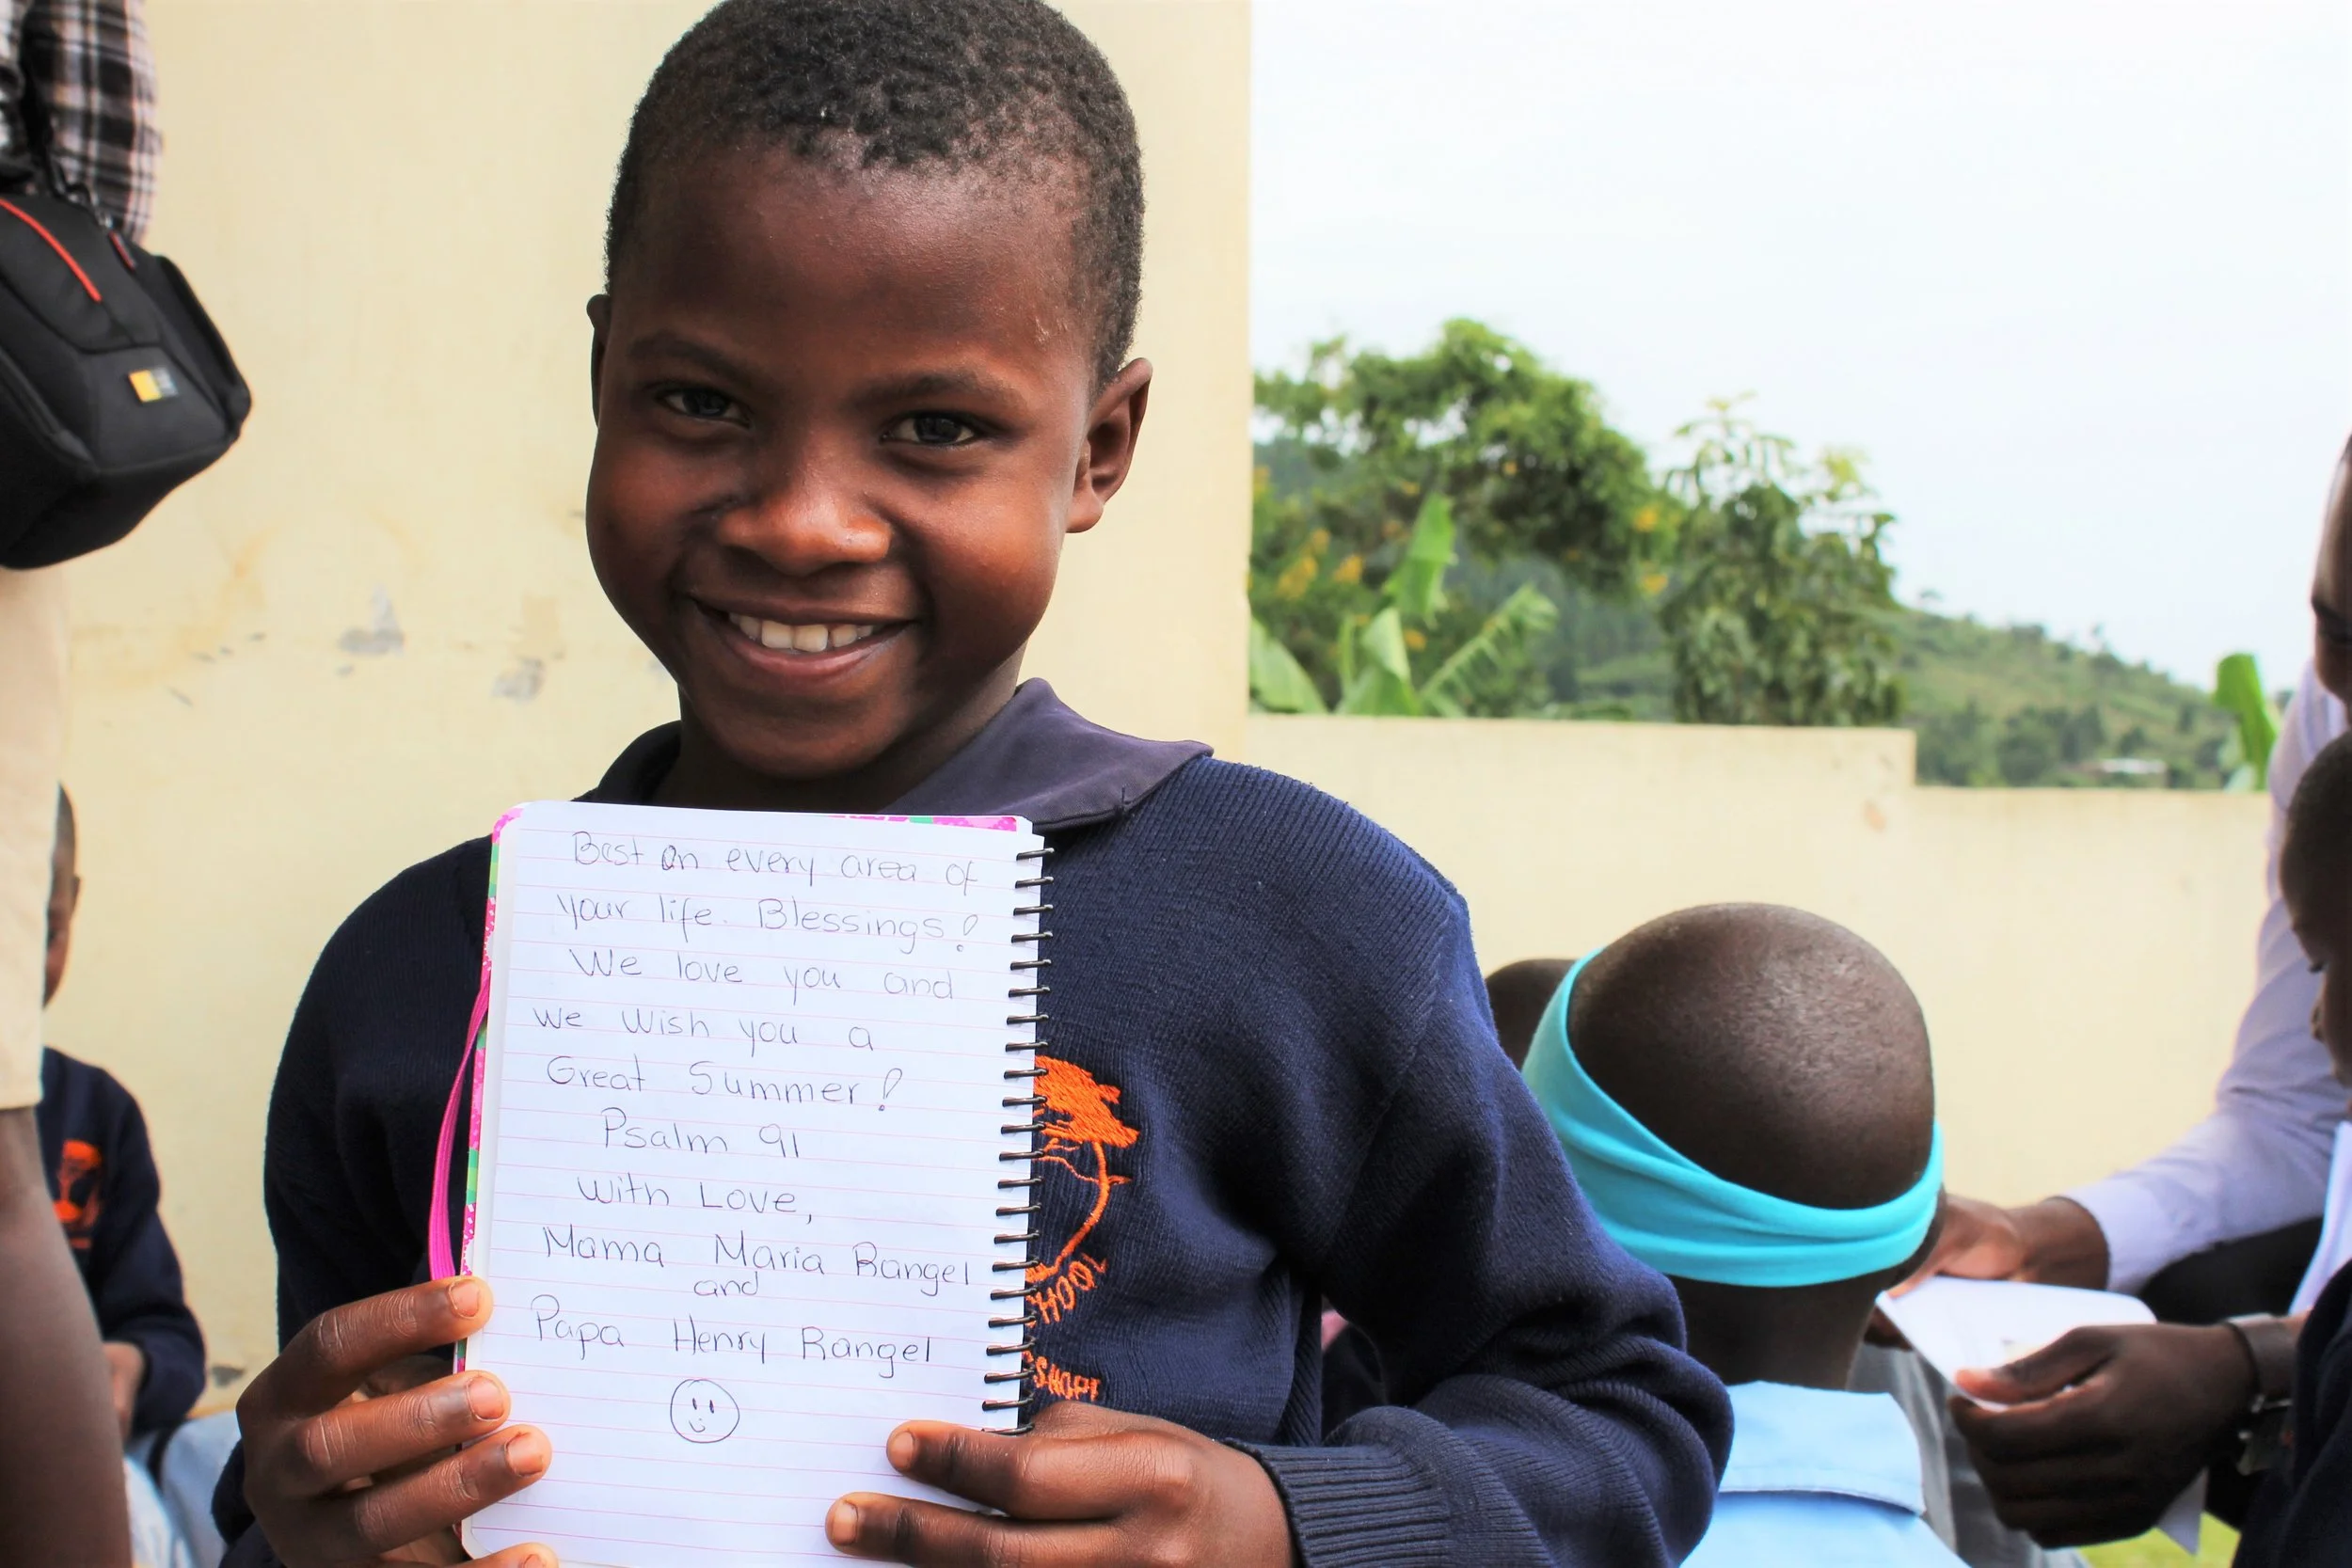 Best on every area of
your life. Blessings!
We love you and
we wish you a
Great Summer!
Psalm 91
With Love,
Mama Maria Rangel
and
Papa Henry Rangel